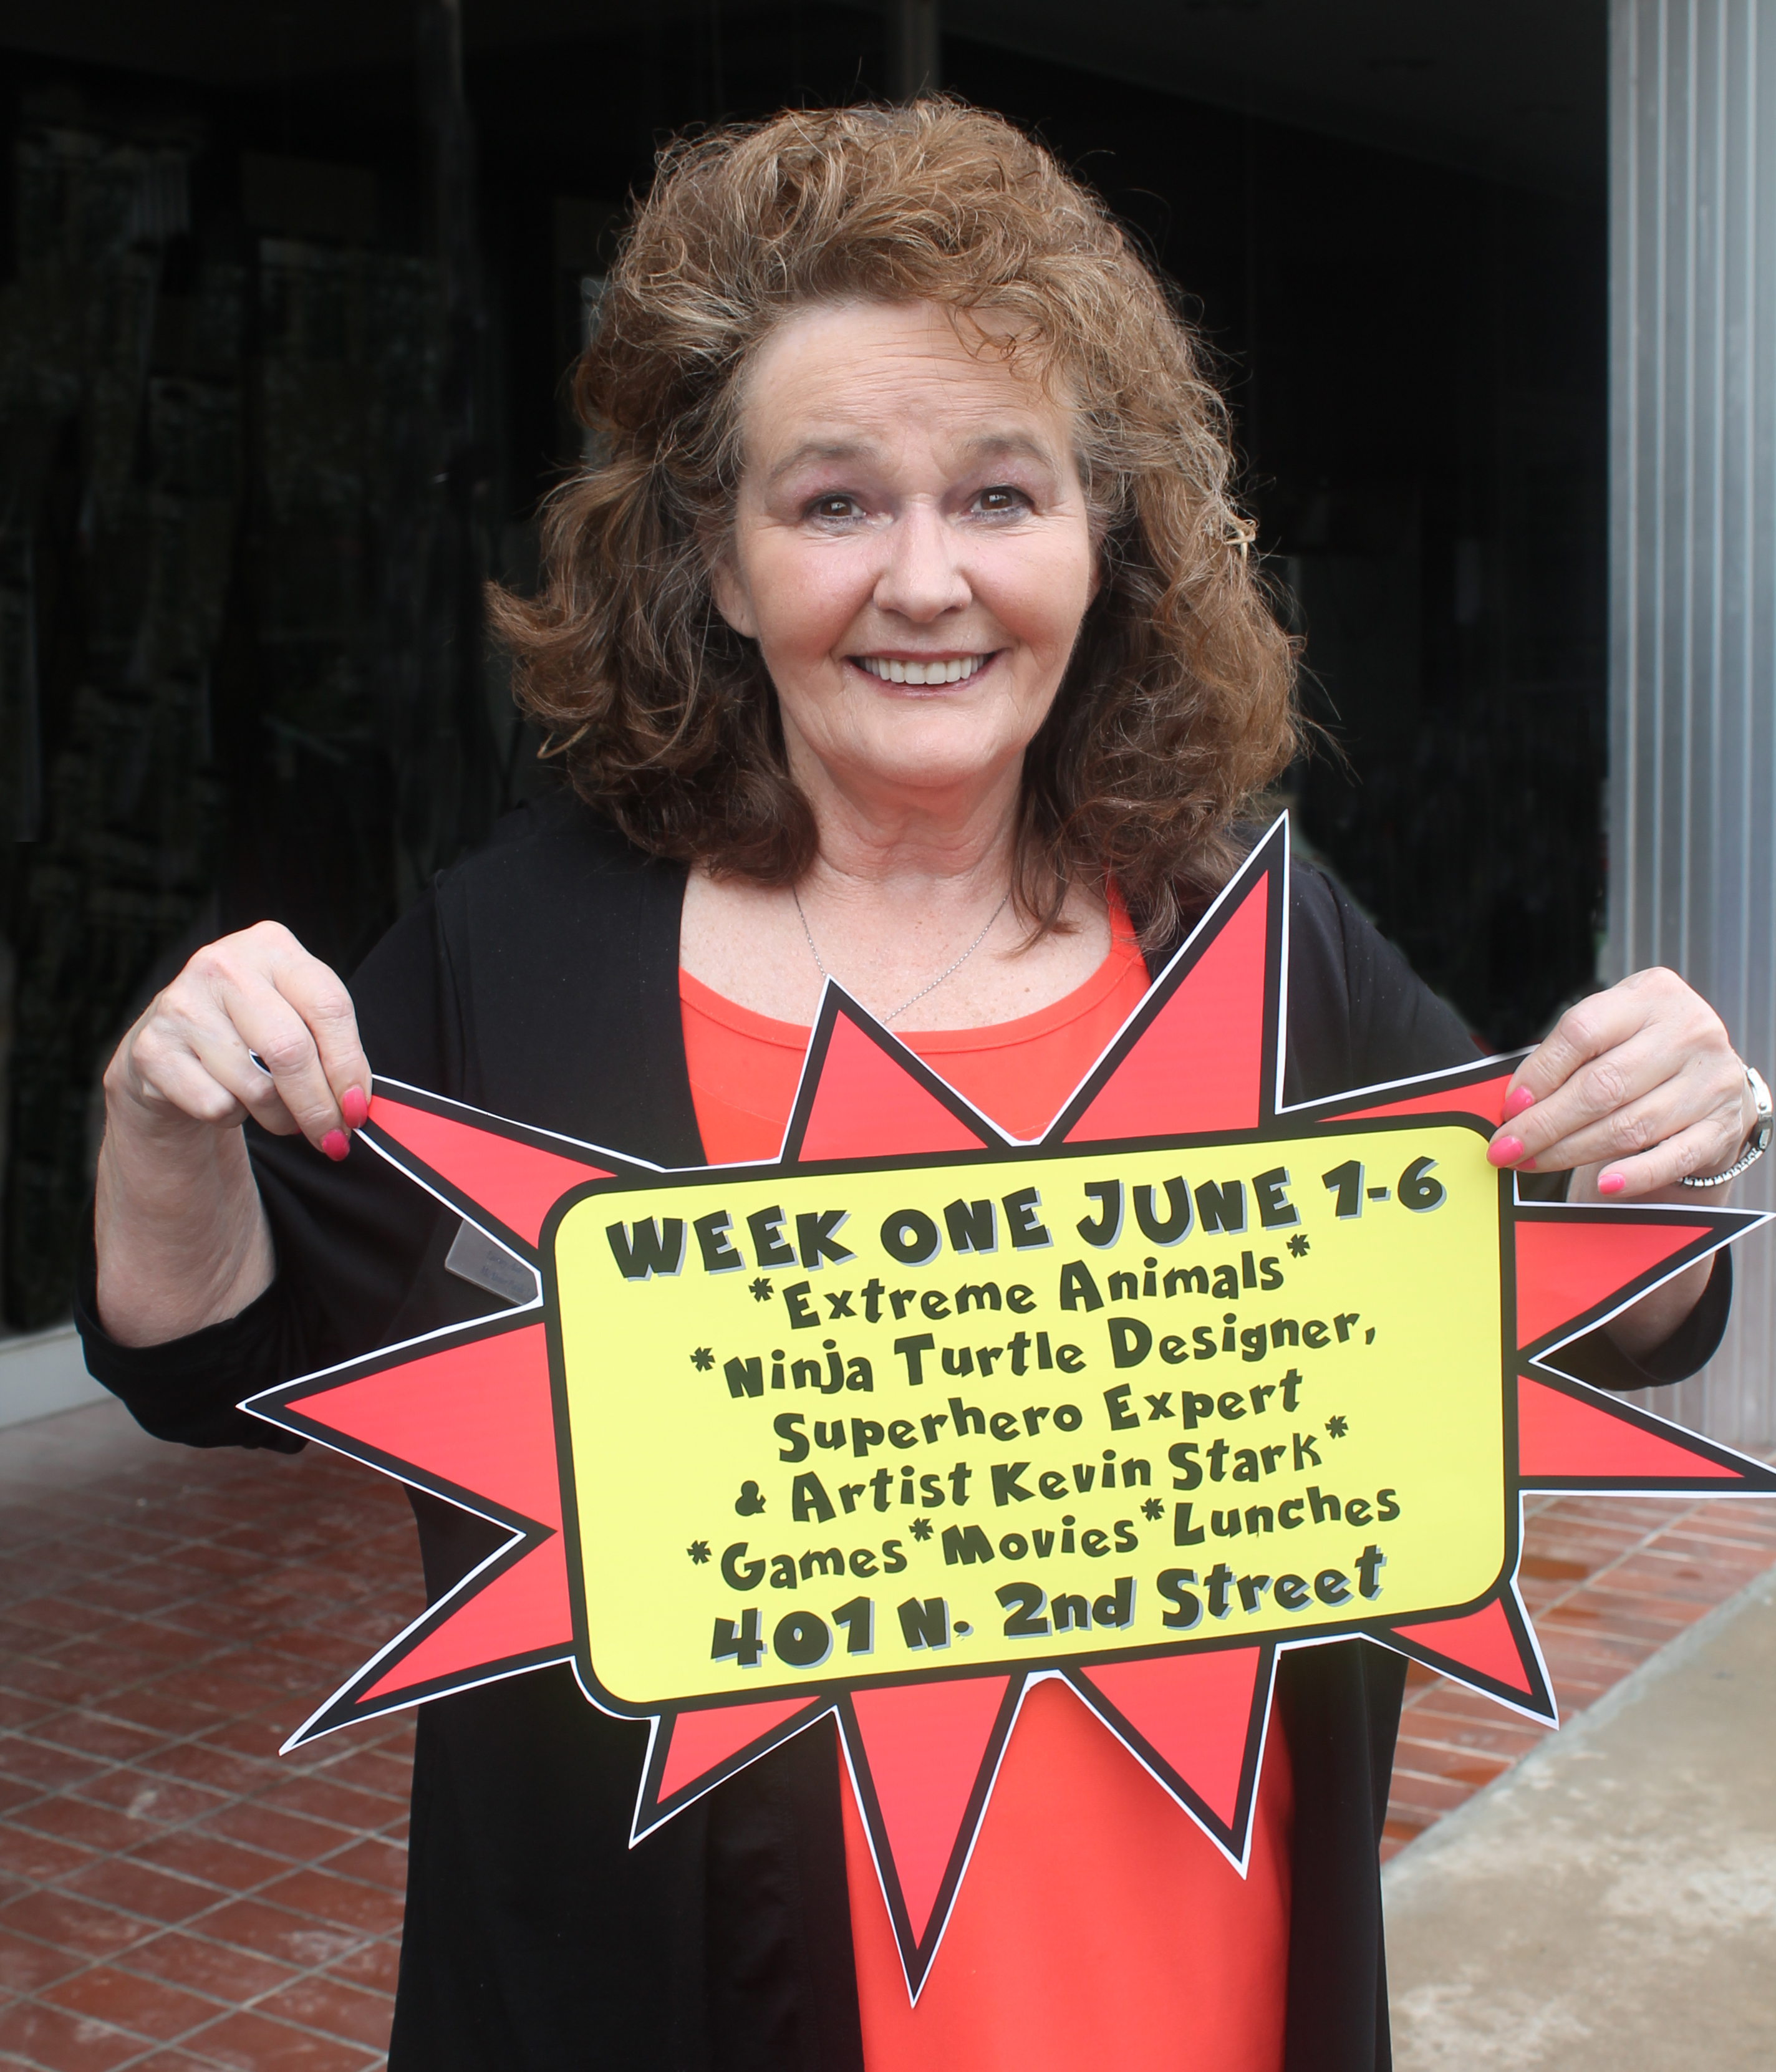 WEEK ONE JUNE 1-6
*Extreme Animals*
*Ninja Turtle Designer,
Superhero Expert
& Artist Kevin Stark*
*Games*Movies*Lunches
401 N. 2nd Street